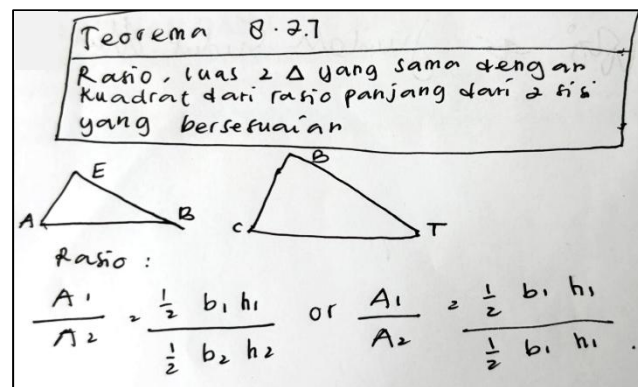 Teorema 8.2.7
Rasio, luas 2 Δ yang sama dengan
kuadrat dari rasio panjang dari 2 sisi
yang bersesuaian
E
A
B
B
C
T
Rasio :
A₁/A₂ = ½ b₁ h₁ / ½ b₂ h₂ or A₁/A₂ = ½ b₁ h₁ / ½ b₁ h₁ .